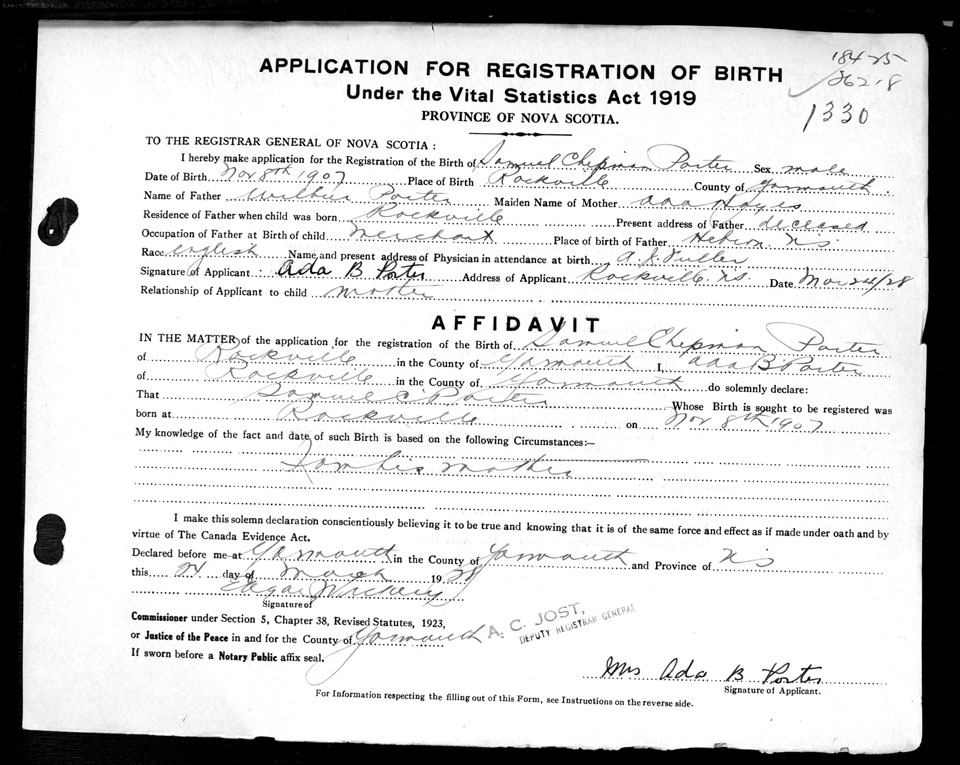 184-25
26218
1330
APPLICATION FOR REGISTRATION OF BIRTH
Under the Vital Statistics Act 1919
PROVINCE OF NOVA SCOTIA.
TO THE REGISTRAR GENERAL OF NOVA SCOTIA :
I hereby make application for the Registration of the Birth of Samuel Chipman Porter Sex male
Date of Birth Nov 8th 1907 Place of Birth Rockville County of Yarmouth.
Name of Father Wilbur Porter Maiden Name of Mother Ada Hayes
Residence of Father when child was born Rockville Present address of Father deceased
Occupation of Father at Birth of child merchant Place of birth of Father Hebron NS
Race english Name and present address of Physician in attendance at birth A. J. Fuller
Signature of Applicant : Ada B Porter Address of Applicant Rockville NS Date Mar 24/28
Relationship of Applicant to child mother
AFFIDAVIT
IN THE MATTER of the application for the registration of the Birth of Samuel Chipman Porter
of Rockville in the County of Yarmouth I, Ada B Porter
of Rockville in the County of Yarmouth do solemnly declare:
That Samuel C Porter Whose Birth is sought to be registered was
born at Rockville on Nov 8th 1907
My knowledge of the fact and date of such Birth is based on the following Circumstances:—
I am his mother
I make this solemn declaration conscientiously believing it to be true and knowing that it is of the same force and effect as if made under oath and by
virtue of The Canada Evidence Act.
Declared before me at Yarmouth in the County of Yarmouth and Province of NS
this 24 day of March 1928
Edgar
Signature of
Commissioner under Section 5, Chapter 38, Revised Statutes, 1923,
or Justice of the Peace in and for the County of Yarmouth
A. C. JOST,
DEPUTY REGISTRAR GENERAL
If sworn before a Notary Public affix seal.
Mrs Ada B Porter
Signature of Applicant.
For Information respecting the filling out of this Form, see Instructions on the reverse side.